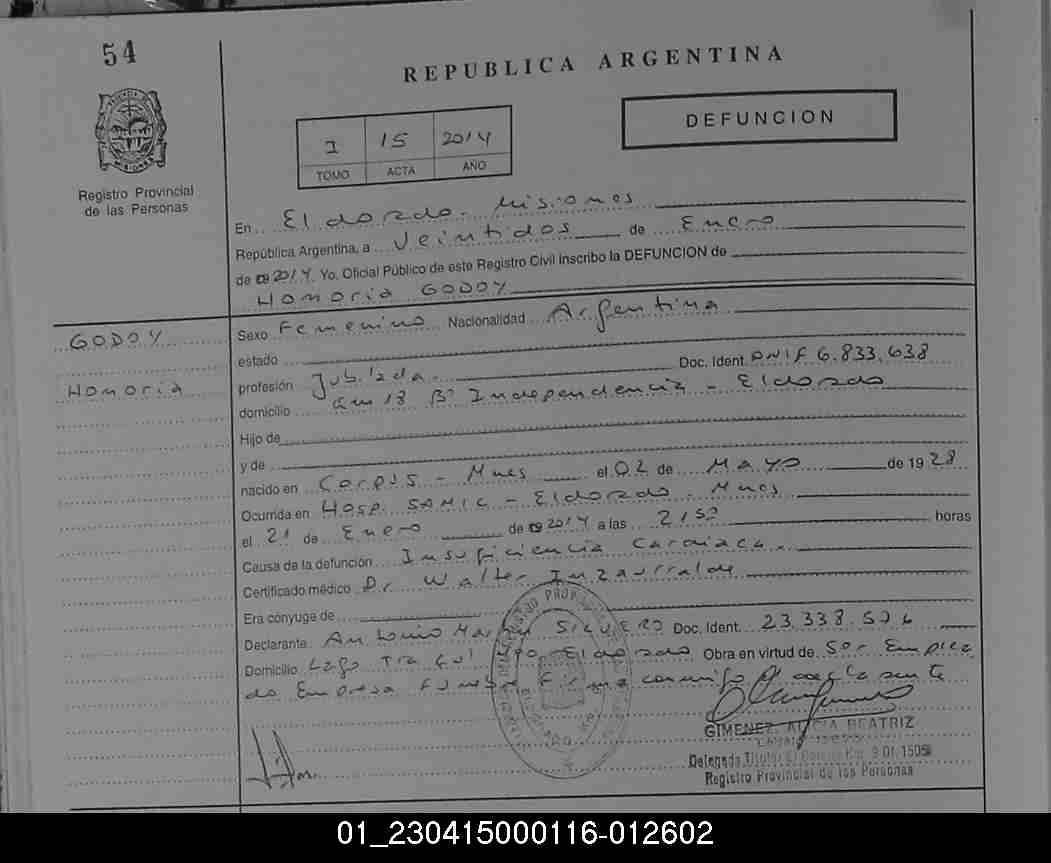 54
REPUBLICA ARGENTINA
DEFUNCION
I 15 2014
TOMO ACTA AÑO
Registro Provincial
de las Personas
En Eldorado. Misiones
República Argentina, a Veintidos de Enero
de 2014 Yo. Oficial Público de este Registro Civil inscribo la DEFUNCION de
Honoria GODOY
GODOY
Honoria
Sexo Femenino Nacionalidad Argentina
estado
profesión Jubilada. Doc. Ident. DNIF 6.833.638
domicilio Km 18 Bº Independencia - Eldorado
Hijo de
y de
nacido en Corpus - Mnes el 02 de MAYO de 1928
Ocurrida en Hosp. SAMIC - Eldorado - Mnes
el 21 de Enero de 2014 a las 21 50 horas
Causa de la defunción Insuficiencia Cardiaca.
Certificado médico Dr Walter Inzaurralde
Era cónyuge de
Declarante Antonio SILVERO Doc. Ident. 23.338.526
Domicilio Lago Eldorado Obra en virtud de Ser Emplea
do Empresa Funebre Firma conmigo
GIMENEZ, ALICIA BEATRIZ
Delegada Titular
Registro Provincial de las Personas
01_230415000116-012602